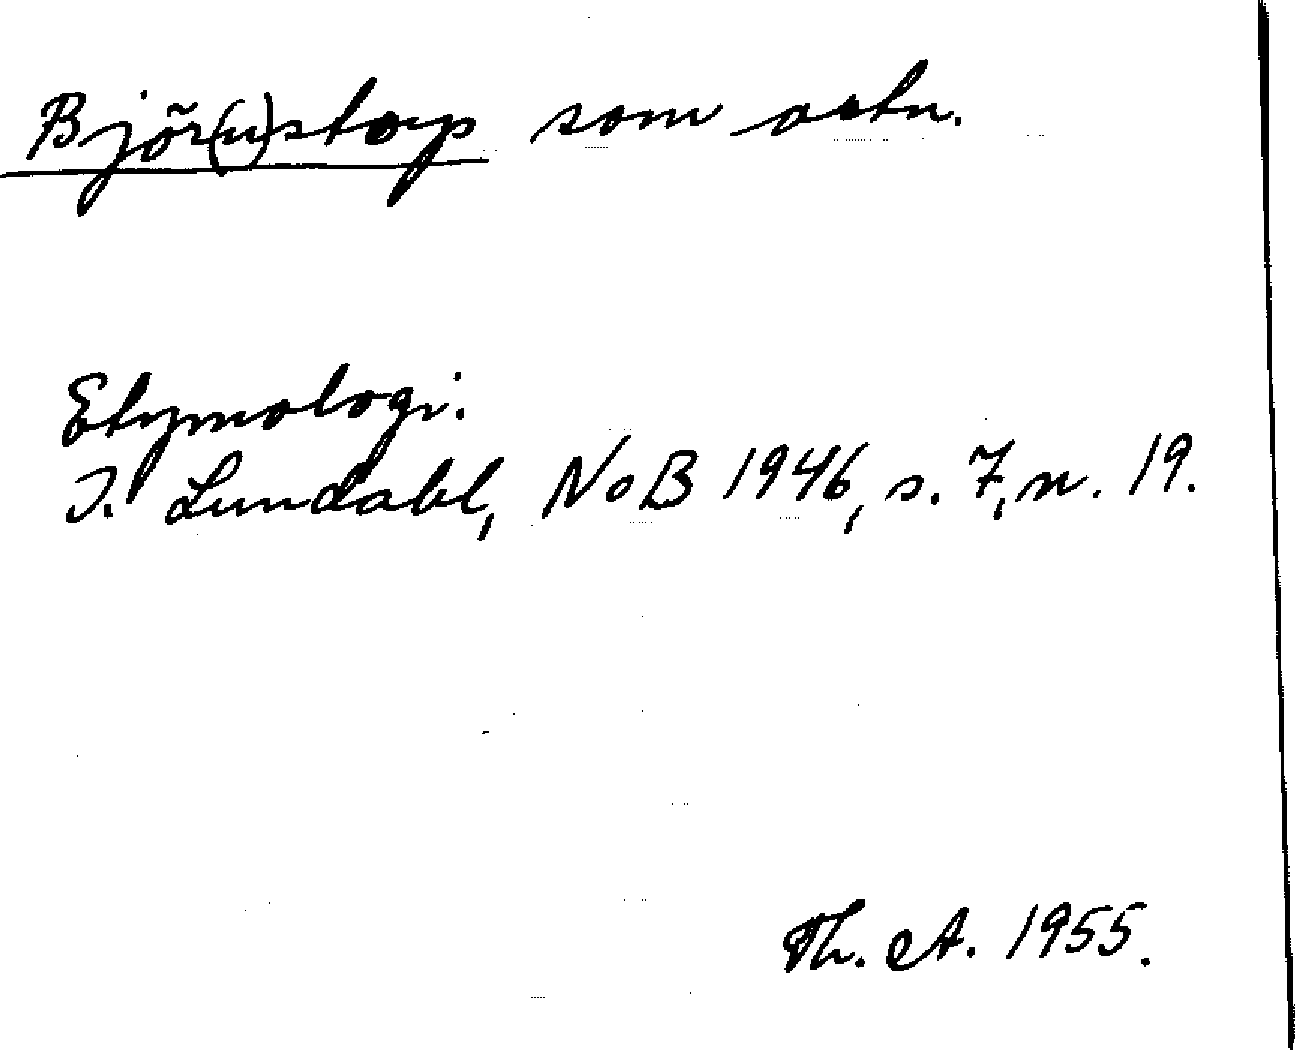 Björ(n)storp som ortn.
Etymologi.
I. Lundahl, NoB 1946, s. 7, n. 19.
Th. A. 1955.